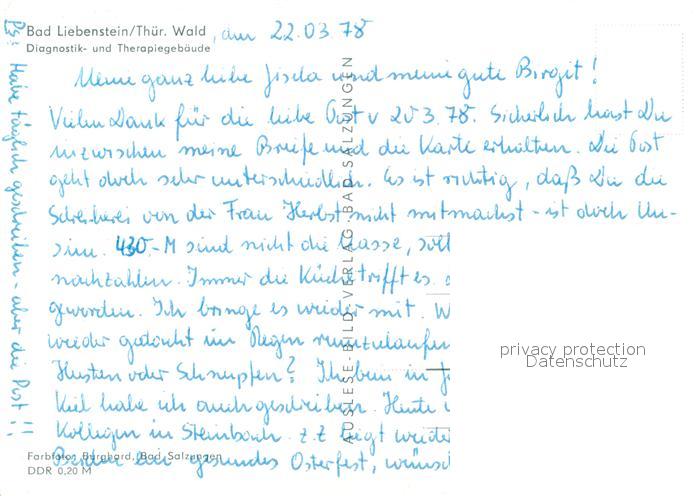 Bad Liebenstein/Thür. Wald, am 22.03.78
Diagnostik- und Therapiegebäude
Meine ganz liebe Gisela und meine gute Birgit!
Vielen Dank für die liebe Post v 20.3.78. Sicherlich hast Du
inzwischen meine Briefe und die Karte erhalten. Die Post
geht doch sehr unterschiedlich. Es ist richtig, daß Du die
Schreiberei von der Frau Herbst nicht mitmachst - ist doch Un-
sinn. 430,- M sind nicht die Kasse, soll
nachzahlen. Immer die Küche trifft es.
geworden. Ich bringe es wieder mit. W
wieder gedacht im Regen rumzulaufen
Husten oder Schnupfen? Ich bin in
Kiel habe ich auch geschrieben. Heute
Kollegen in Steinbach. z.Z liegt wieder
Beiden ein gesundes Osterfest, wünsc
Ps: Habe täglich geschrieben - aber die Post!!
AUSLESE-BILD-VERLAG, BAD SALZUNGEN
Farbfoto: Burghard, Bad Salzungen
DDR 0,20 M
privacy protection
Datenschutz